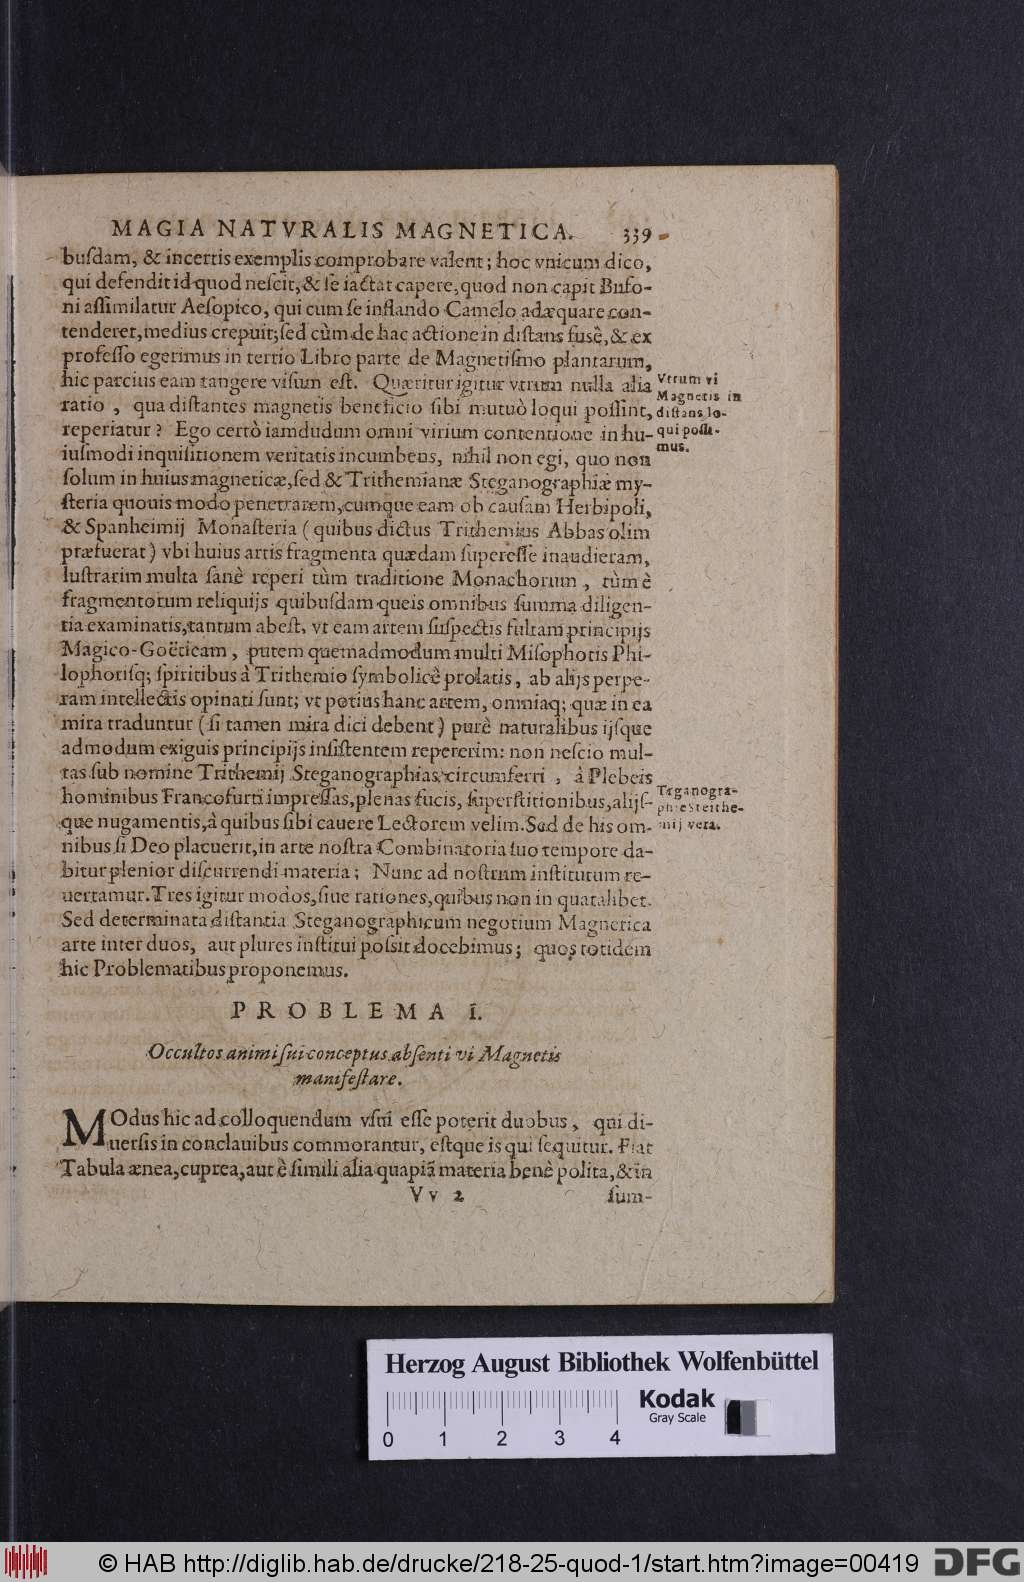 MAGIA NATVRALIS MAGNETICA. 339
buſdam, & incertis exemplis comprobare valent; hoc vnicum dico,
qui defendit id quod neſcit, & ſe iactat capere, quod non capit Bufo-
ni aſſimilatur Aeſopico, qui cum ſe inflando Camelo adæquare con-
tenderet, medius crepuit; ſed cùm de hac actione in diſtans fuſè, & ex
profeſſo egerimus in tertio Libro parte de Magnetiſmo plantarum,
hic parcius eam tangere viſum eſt. Quæritur igitur vtrum nulla alia
ratio, qua diſtantes magnetis beneficio ſibi mutuò loqui poſſint,
reperiatur? Ego certò iamdudum omni virium contentione in hu-
iuſmodi inquiſitionem veritatis incumbens, nihil non egi, quo non
ſolum in huius magneticæ, ſed & Trithemianæ Steganographiæ my-
ſteria quouis modo penetrarem, cumque eam ob cauſam Herbipoli,
& Spanheimij Monaſteria (quibus dictus Trithemius Abbas olim
præfuerat) vbi huius artis fragmenta quædam ſupereſſe inaudieram,
luſtrarim multa ſanè reperi tùm traditione Monachorum, tùm è
fragmentorum reliquijs quibuſdam queis omnibus ſumma diligen-
tia examinatis, tantum abeſt, vt eam artem ſuſpectis fultam principijs
Magico-Goëticam, putem quemadmodum multi Miſophotis Phi-
loſophoriſq; ſpiritibus à Trithemio ſymbolicè prolatis, ab alijs perpe-
ram intellectis opinati ſunt; vt potius hanc artem, omniaq; quæ in ea
mira traduntur (ſi tamen mira dici debent) purè naturalibus ijſque
admodum exiguis principijs inſiſtentem repererim: non neſcio mul-
tas ſub nomine Trithemij Steganographias circumferri, à Plebeis
hominibus Francofurti impreſſas, plenas fucis, ſuperſtitionibus, alijſ-
que nugamentis, à quibus ſibi cauere Lectorem velim. Sed de his om-
nibus ſi Deo placuerit, in arte noſtra Combinatoria ſuo tempore da-
bitur plenior diſcurrendi materia; Nunc ad noſtrum inſtitutum re-
uertamur. Tres igitur modos, ſiue rationes, quibus non in quatalibet.
Sed determinata diſtantia Steganographicum negotium Magnetica
arte inter duos, aut plures inſtitui poſsit docebimus; quos totidem
hic Problematibus proponemus.
Vtrum vi
Magnetis in
diſtans lo-
qui poſſi-
mus.
mij vera.
PROBLEMA I.
Occultos animi ſui conceptus abſenti vi Magnetis
manifeſtare.
MOdus hic ad colloquendum vſui eſſe poterit duobus, qui di-
uerſis in conclauibus commorantur, eſtque is qui ſequitur. Fiat
Tabula ænea, cuprea, aut è ſimili alia quapiã materia benè polita, & in
Vv 2 ſum-
Herzog August Bibliothek Wolfenbüttel
Kodak
Gray Scale
0 1 2 3 4
© HAB http://diglib.hab.de/drucke/218-25-quod-1/start.htm?image=00419 DFG